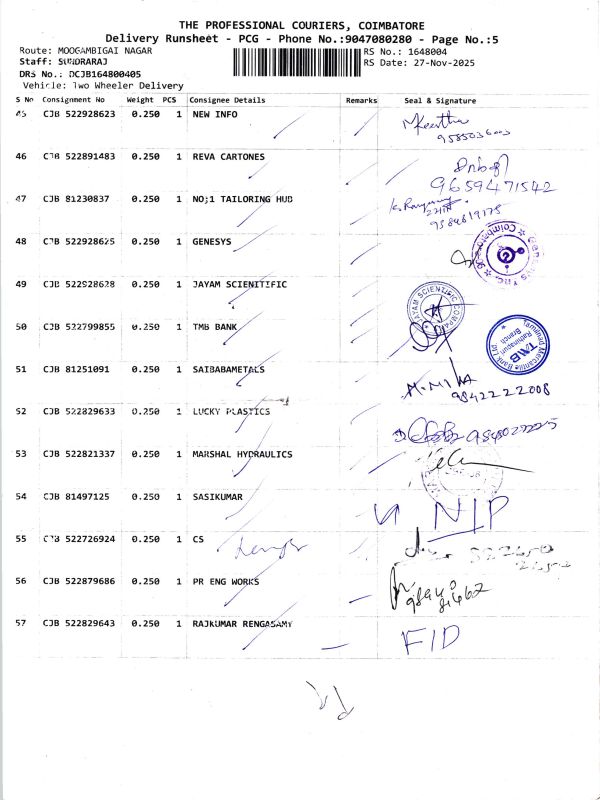 THE PROFESSIONAL COURIERS, COIMBATORE
Delivery Runsheet - PCG - Phone No.:9047080280 - Page No.:5
Route: MOOGAMBIGAI NAGAR RS No.: 1648004
Staff: SUNDRARAJ RS Date: 27-Nov-2025
DRS No.: DCJB164800405
Vehicle: Two Wheeler Delivery
S No Consignment No Weight PCS Consignee Details Remarks Seal & Signature
45 CJB 522928623 0.250 1 NEW INFO Keertha
9585036003
46 CJB 522891483 0.250 1 REVA CARTONES
9659471542
47 CJB 81230837 0.250 1 NO;1 TAILORING HUB
9584819175
48 CJB 522928625 0.250 1 GENESYS
49 CJB 522928628 0.250 1 JAYAM SCIENITIFIC JAYAM SCIENTIFIC COMPANY
50 CJB 522799855 0.250 1 TMB BANK Tamilnad Mercantile Bank Ltd TMB Rathinapuri Branch
51 CJB 81251091 0.250 1 SAIBABAMETALS
9842222008
52 CJB 522829633 0.250 1 LUCKY PLASTICS
53 CJB 522821337 0.250 1 MARSHAL HYDRAULICS
54 CJB 81497125 0.250 1 SASIKUMAR NIP
55 CJB 522726924 0.250 1 CS
56 CJB 522879686 0.250 1 PR ENG WORKS
57 CJB 522829643 0.250 1 RAJKUMAR RENGASAMY FID